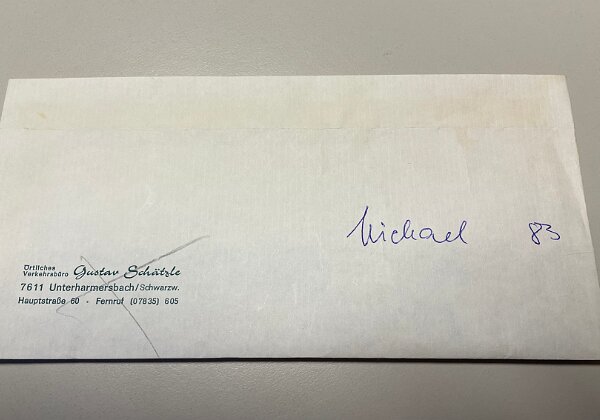 Michael 83
Örtliches
Verkehrsbüro Gustav Schätzle
7611 Unterharmersbach/Schwarzw.
Hauptstraße 60 - Fernruf (07835) 605